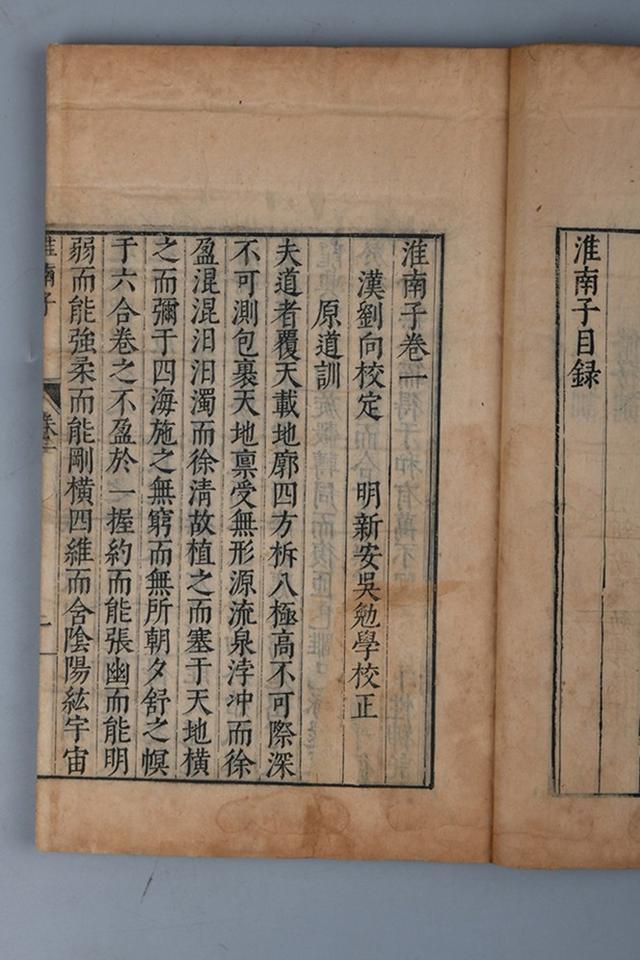 淮南子目録
淮南子卷一
漢劉向校定　明新安吳勉學校正
原道訓
夫道者覆天載地廓四方柝八極高不可際深
不可測包裹天地禀受無形源流泉浡冲而徐
盈混混汩汩濁而徐清故植之而塞于天地橫
之而彌于四海施之無窮而無所朝夕舒之幎
于六合卷之不盈於一握約而能張幽而能明
弱而能強柔而能剛橫四維而含陰陽紘宇宙
淮南子